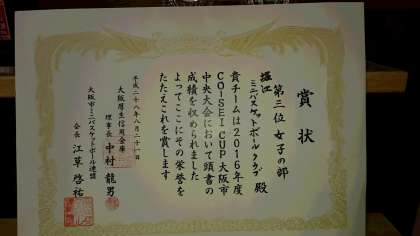 賞状
第三位 女子の部
堀江
ミニバスケットボールクラブ 殿
貴チームは2016年度
COISEI CUP大阪市
中央大会において頭書の
成績を収められました
よってここにその栄誉を
たたえこれを賞します
平成二十八年八月二十一日
大阪厚生信用金庫
理事長 中村龍男
大阪市ミニバスケットボール連盟
会長 江草啓祐